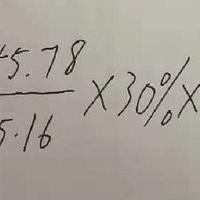 5.78
5.16 ×30%×